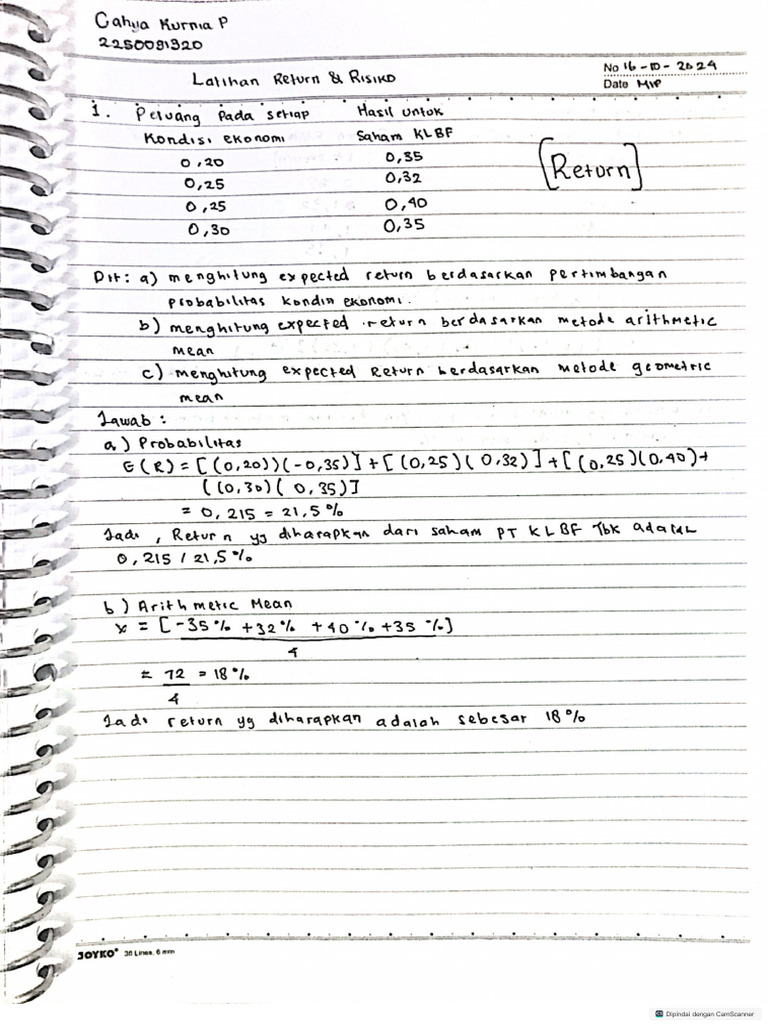 Cahya Kurnia P
2250091320
Latihan Return & Risiko
No 16-10-2024
Date MIP
1. Peluang Pada setiap Hasil untuk
Kondisi ekonomi Saham KLBF
0,20 0,35
0,25 0,32
0,25 0,40
0,30 0,35
[Return]
Dit: a) menghitung expected return berdasarkan pertimbangan
probabilitas kondisi ekonomi.
b) menghitung expected return berdasarkan metode arithmetic
mean
c) menghitung expected Return berdasarkan metode geometric
mean
Jawab :
a) Probabilitas
E(R) = [(0,20))(-0,35)] + [(0,25)(0,32)] + [(0,25)(0,40)+
((0,30)(0,35)]
= 0,215 = 21,5%
Jadi, Return yg diharapkan dari saham PT KLBF Tbk adalah
0,215 / 21,5%
b) Arithmetic Mean
x = [-35% +32% +40% +35%]
4
= 72 = 18%
4
Jadi return yg diharapkan adalah sebesar 18%
JOYKO® 36 Lines, 6 mm
CS Dipindai dengan CamScanner